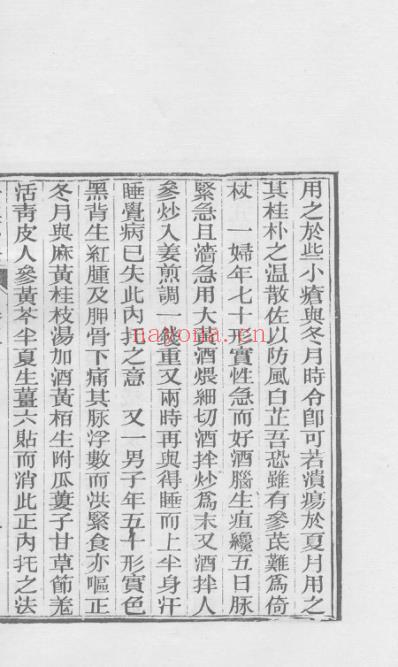 用之於些小瘡與冬月時令卽可若潰瘍於夏月用之
其桂朴之温散佐以防風白芷吾恐雖有參芪難為倚
杖　一婦年七十形實性急而好酒腦生疽纔五日脉
緊急且濇急用大黃酒煨細切酒拌炒為末又酒拌人
參炒入姜煎調一錢重又兩時再與得睡而上半身汗
睡覺病已失此內托之意　又一男子年五十形實色
黑背生紅腫及胛骨下痛其脉浮數而洪緊食亦嘔正
冬月與麻黃桂枝湯加酒黃栢生附瓜蔞子甘草節羗
活靑皮人參黃芩半夏生薑六貼而消此正內托之法
nayona.cn